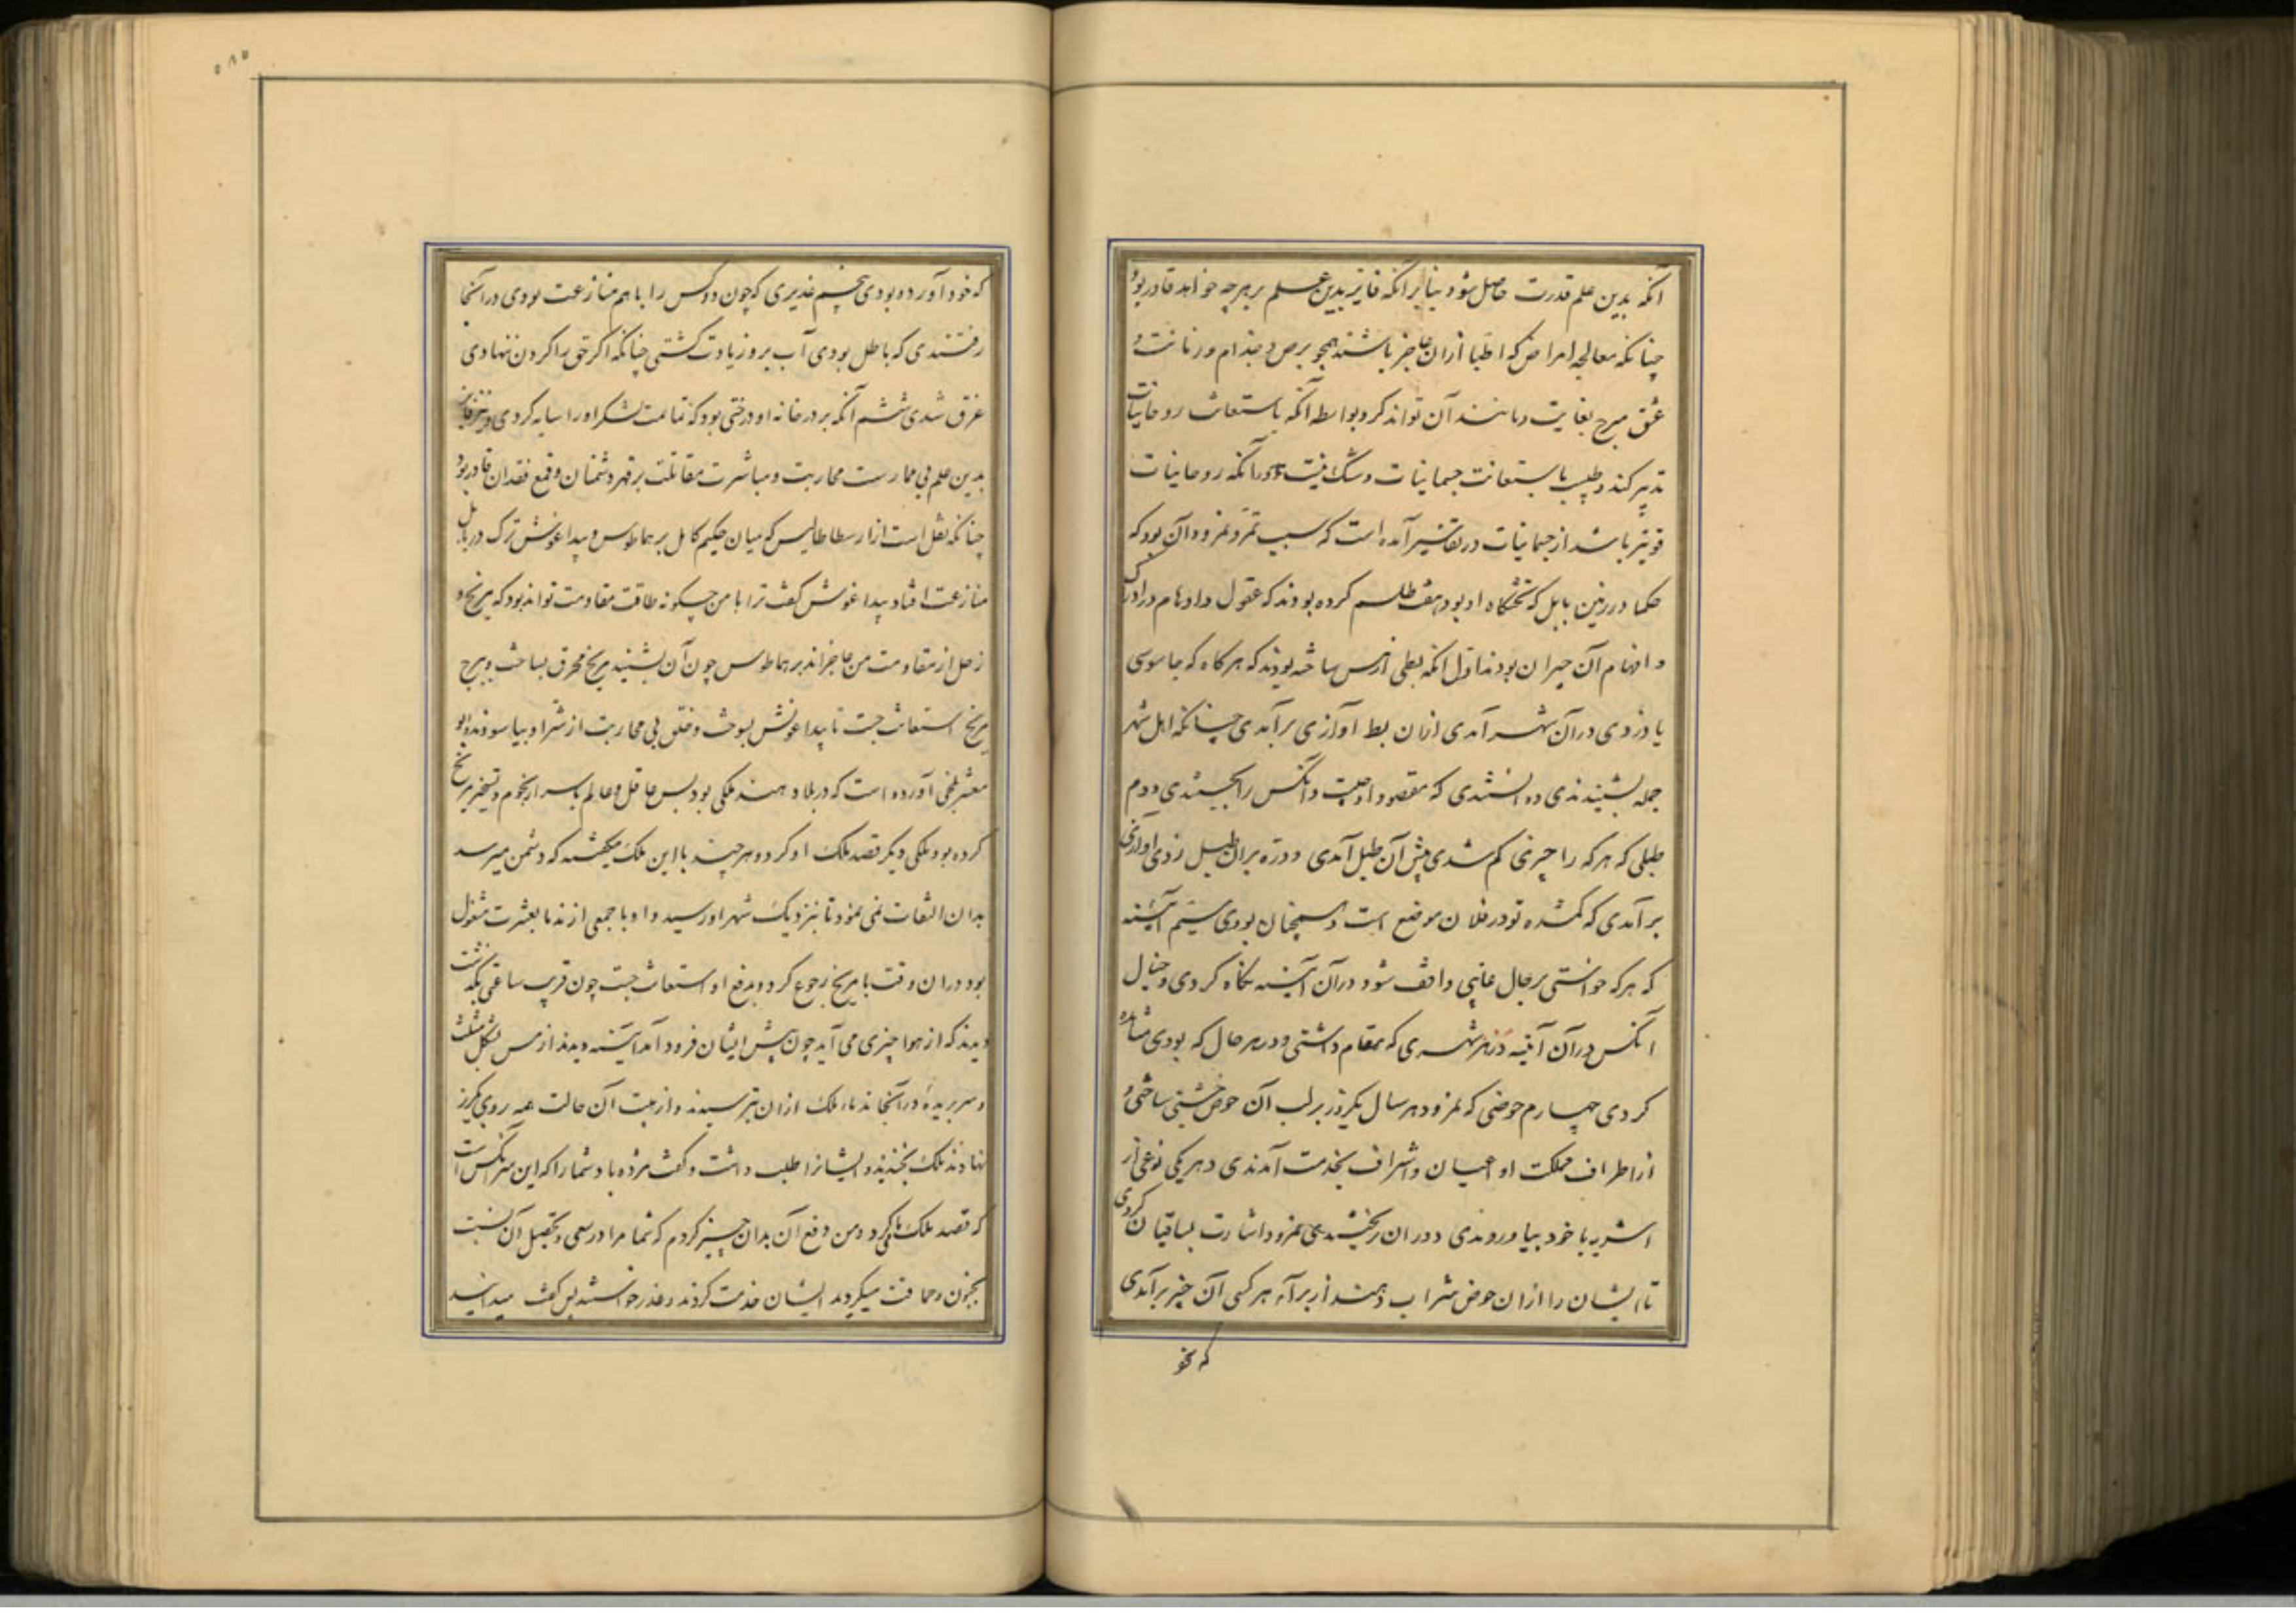 آنکه بدین علم قدرت حاصل شود بنابر آنکه فایز بدین علم بر هرچه خواهد قادر بود
چنانکه معالجه امراض که اطبا ازان عاجز باشند همچو برص و جذام و زمانت و
عشق مبرح بغایت و مانند آن تواند کرد بواسطه آنکه باستعانت روحانیات
تدبیر کند و طبیب باستعانت جسمانیات و شک نیست در آنکه روحانیات
قویتر باشد از جسمانیات در تفاسیر آمده است که سبب تمرد نمرود آن بود که
حکما در زمین بابل که تختگاه او بود هفت طلسم کرده بودند که عقول و اوهام در ادراک
و افهام آن حیران بودند اول آنکه بطی از مس ساخته بودند که هرگاه که جاسوسی
یا دزدی در آن شهر آمدی ازان بط آوازی برآمدی چنانکه اهل شهر
جمله بشنیدندی و دانستندی که مقصود او چیست و آنکس را بجستندی دوم
طبلی که هرکه را چیزی گم شدی پیش آن طبل آمدی و دره بران طبل زدی آوازی
برآمدی که گمشده تو در فلان موضع است و همچنان بودی سیم آینه
که هرکه خواستی بر حال غایبی واقف شود در آن آینه نگاه کردی و خیال
آنکس در آن آینه در هر شهری که مقام داشتی و در هر حال که بودی مشاهده
کردی چهارم حوضی که نمرود هر سال یکروز بر لب آن حوض جشنی ساختی و
از اطراف مملکت او اعیان و اشراف بخدمت آمدندی و هر یکی نوعی از
اشربه با خود بیاوردندی و دران ریختندی نمرود اشارت بساقیان کردی
تا ایشان را ازان حوض شراب دهند از برای هر کسی آن چیز برآمدی
که بخو
٥٨٥
که خود آورده بودی پنجم غدیری که چون دو کس را با هم منازعت بودی در آنجا
رفتندی که باطل بودی آب برو زیادت گشتی چنانکه اگر حق را گردن ننهادی
غرق شدی ششم آنکه بر در خانه او درختی بود که تمامت لشکر او را سایه کردی و نیز فایز
بدین علم بی ممارست محاربت و مباشرت مقاتلت بر قهر دشمنان و قمع قادر بود
چنانکه نقل است از ارسطاطالیس که میان حکیم کامل برهماطوس و بیداغوش ترک در بابل
منازعت افتاد بیداغوش گفت ترا با من چگونه طاقت مقاومت تواند بود که مریخ و
زحل از مقاومت من عاجزاند برهماطوس چون آن بشنید مریخ محرق بساخت و بروح
مریخ استعانت جست تا بیداغوش بسوخت و خلق بی محاربت از شر او بیاسودند و ابو
معشر بلخی آورده است که در بلاد هند ملکی بود بس عاقل و عالم باسرار نجوم و تسخیر مریخ
کرده بود ملکی دیگر قصد ملک او کرد و هرچند با این ملک میگفتند که دشمن میرسد
بدان التفات نمی نمود تا بنزدیک شهر او رسید و او با جمعی از ندما بعشرت مشغول
بود دران وقت با مریخ رجوع کرد و بدفع او استعانت جست چون قریب ساعتی بگذشت
دیدند که از هوا چیزی می آید چون پیش ایشان فرود آمد آینه دیدند از مس بشکل مثلث
و سر بریده در آنجا ندماء ملک ازان بترسیدند و از هیبت آن حالت همه روی بگریز
نهادند ملک بخندید و ایشانرا طلب داشت و گفت مژده باد شما را که این سر آنکس است
که قصد ملک ما میکرد و من دفع آن بدان چیز کردم که شما مرا در سعی و تحصیل آن نسبت
بجنون و حماقت میکردید ایشان خدمت کردند و عذر خواستند پس گفت میدانید